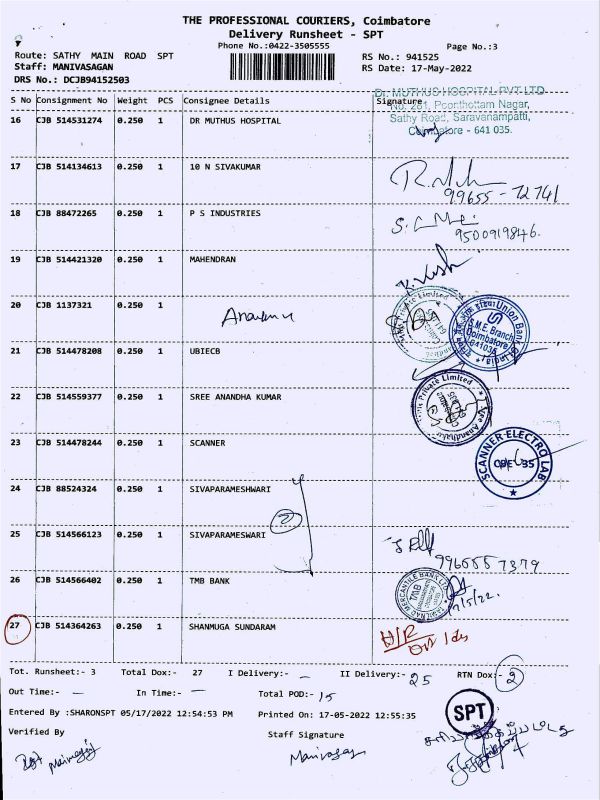 THE PROFESSIONAL COURIERS, Coimbatore
Delivery Runsheet - SPT
Phone No.:0422-3505555
Page No.:3
Route: SATHY MAIN ROAD SPT
RS No.: 941525
Staff: MANIVASAGAN
RS Date: 17-May-2022
DRS No.: DCJB94152503
S No Consignment No Weight PCS Consignee Details Signature
Dr. MUTHUS HOSPITAL PVT LTD
No. 261, Poonthottam Nagar,
Sathy Road, Saravanampatti,
Coimbatore - 641 035.
16 CJB 514531274 0.250 1 DR MUTHUS HOSPITAL
17 CJB 514134613 0.250 1 10 N SIVAKUMAR
99655 - 72741
18 CJB 88472265 0.250 1 P S INDUSTRIES
9500919846.
19 CJB 514421320 0.250 1 MAHENDRAN
20 CJB 1137321 0.250 1
Union Bank of India
S.M.E. Branch
Coimbatore
641035
21 CJB 514478208 0.250 1 UBIECB
22 CJB 514559377 0.250 1 SREE ANANDHA KUMAR
Private Limited
23 CJB 514478244 0.250 1 SCANNER
SCANNER ELECTRO LAB
24 CJB 88524324 0.250 1 SIVAPARAMESHWARI
2
25 CJB 514566123 0.250 1 SIVAPARAMESWARI
9965557379
26 CJB 514566402 0.250 1 TMB BANK
TAMILNAD MERCANTILE BANK LTD
TMB
27 CJB 514364263 0.250 1 SHANMUGA SUNDARAM
Tot. Runsheet:- 3 Total Dox:- 27 I Delivery:- — II Delivery:- 25 RTN Dox:- 2
Out Time:- — In Time:- — Total POD:- 15
Entered By :SHARONSPT 05/17/2022 12:54:53 PM Printed On: 17-05-2022 12:55:35
SPT
Verified By Staff Signature
Manivasagan